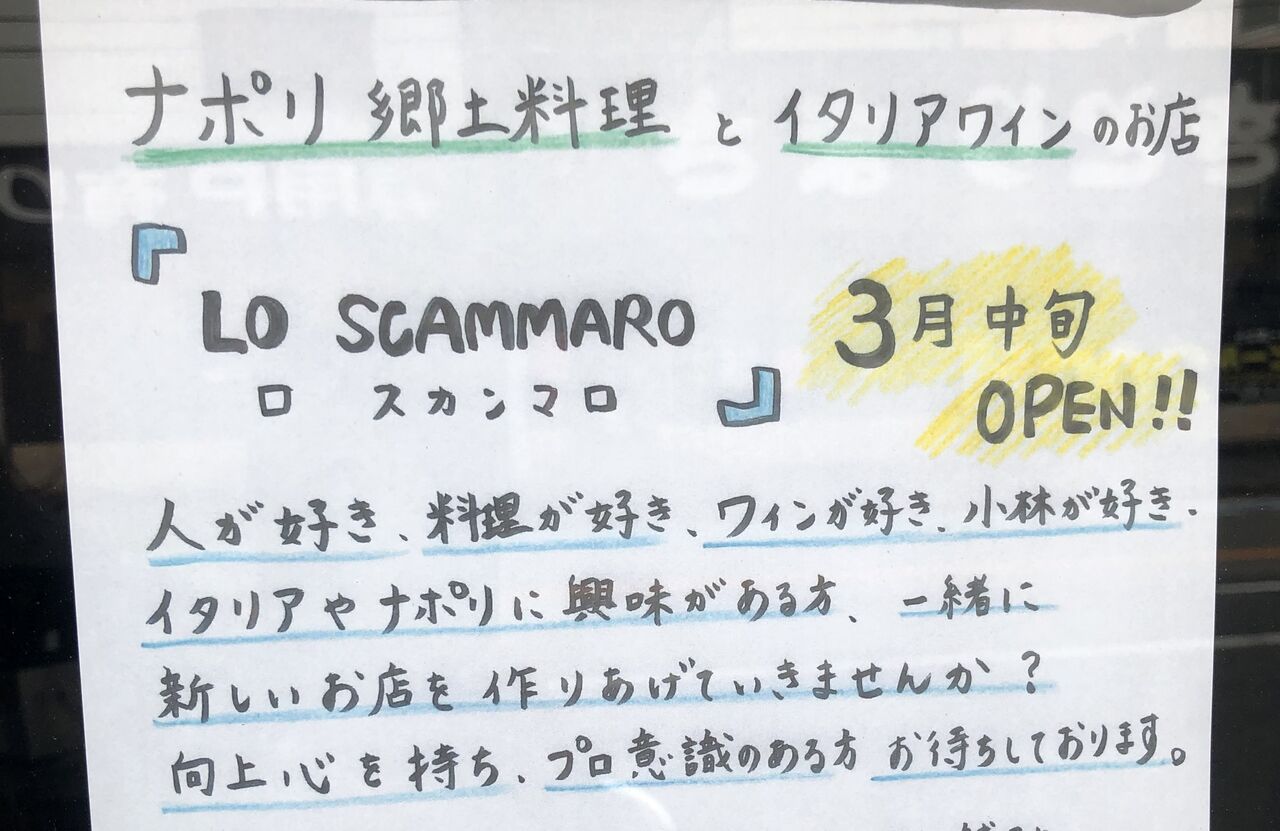 ナポリ郷土料理とイタリアワインのお店
『LO SCAMMARO
ロ スカンマロ』
3月中旬
OPEN!!
人が好き、料理が好き、ワインが好き、小林が好き、
イタリアやナポリに興味がある方、一緒に
新しいお店を作りあげていきませんか?
向上心を持ち、プロ意識のある方お待ちしております。